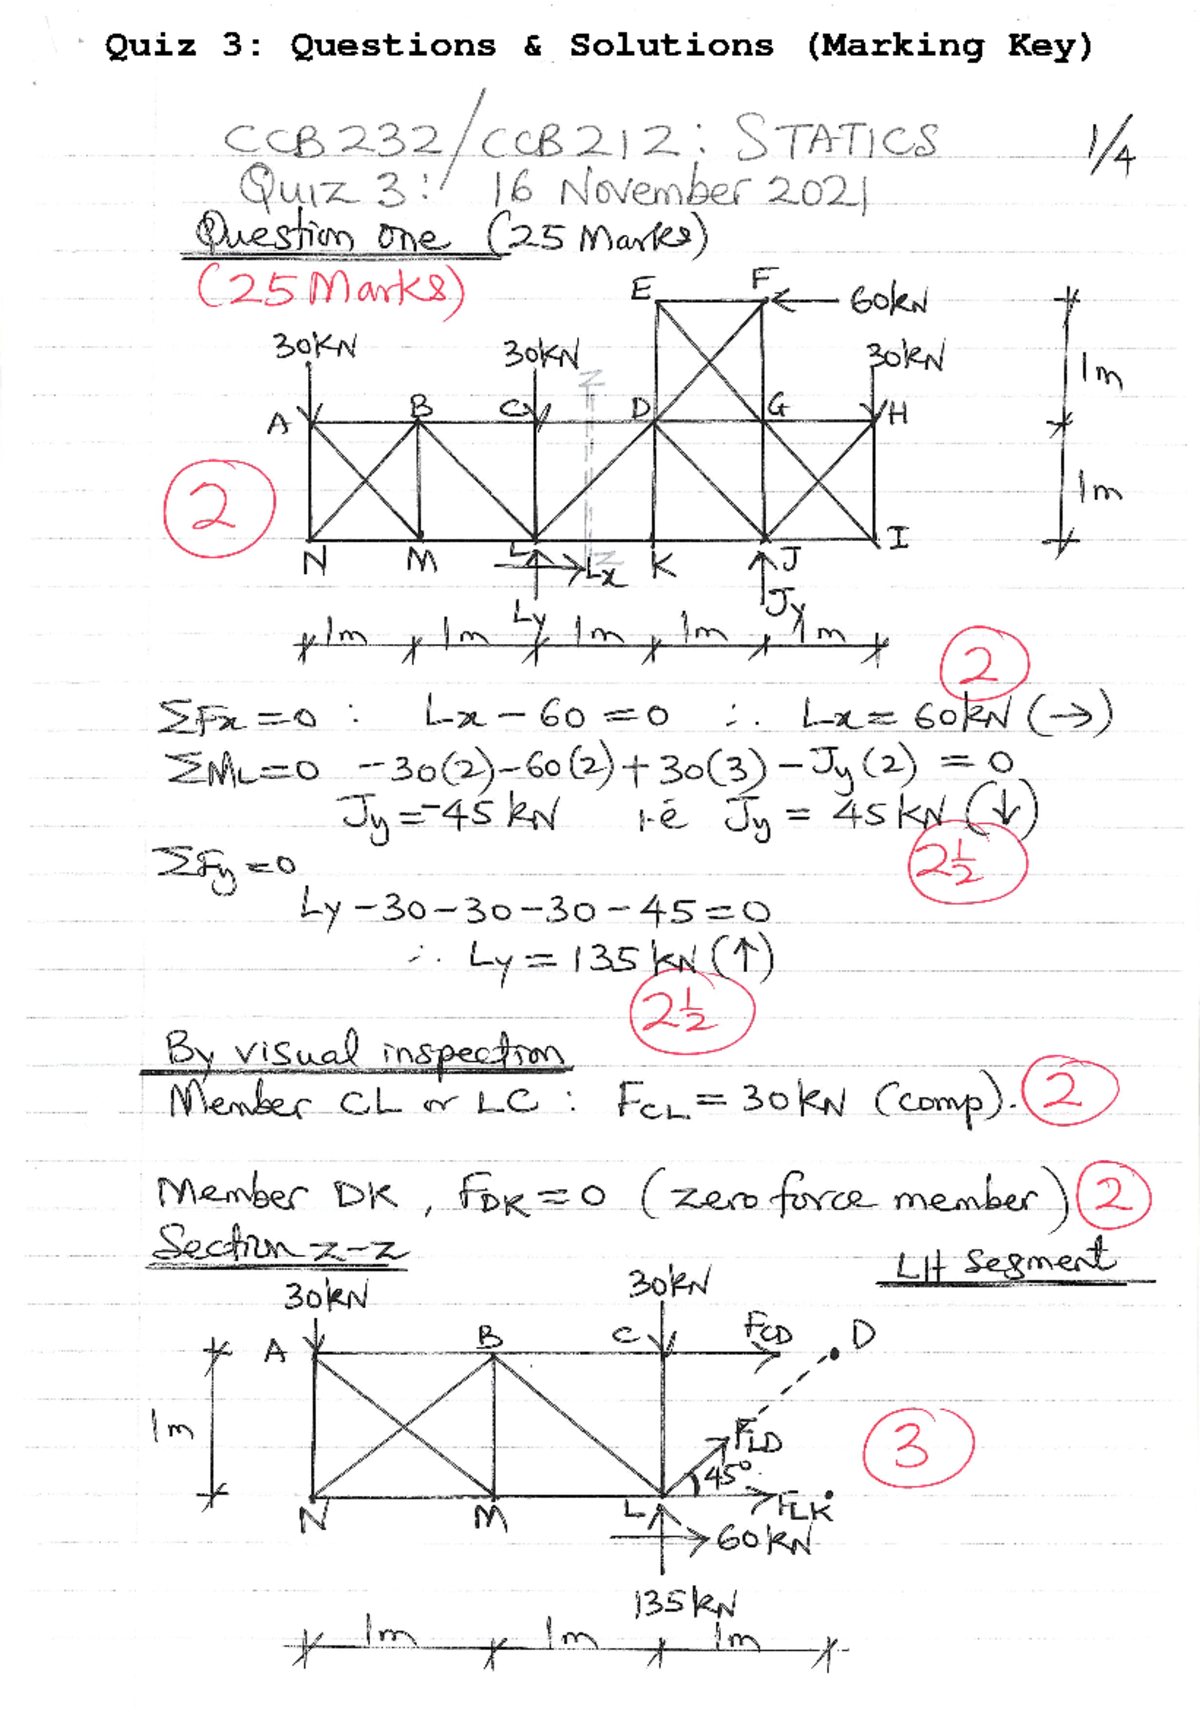 Quiz 3: Questions & Solutions (Marking Key)
CCB232/CCB212: STATICS 1/4
Quiz 3: 16 November 2021
Question one (25 Marks)
(25 Marks)
E F 60kN
30kN 30kN 30kN 1m
Z
A B C D G H
2 1m
N M L Z Lx K J I
Ly Jy
1m 1m 1m 1m 1m
2
ΣFx = 0 : Lx - 60 = 0 ∴ Lx = 60kN (→)
ΣML = 0 -30(2) - 60(2) + 30(3) - Jy(2) = 0
Jy = -45 kN i.e Jy = 45 kN (↓)
2½
ΣFy = 0
Ly - 30 - 30 - 30 - 45 = 0
∴ Ly = 135 kN (↑)
2½
By visual inspection
Member CL or LC : FCL = 30kN (comp). 2
Member DK, FDK = 0 (zero force member) 2
Section z-z LH segment
30kN 30kN
A B C FCD D
1m FLD 3
45°
N M L FLK
60kN
135kN
1m 1m 1m